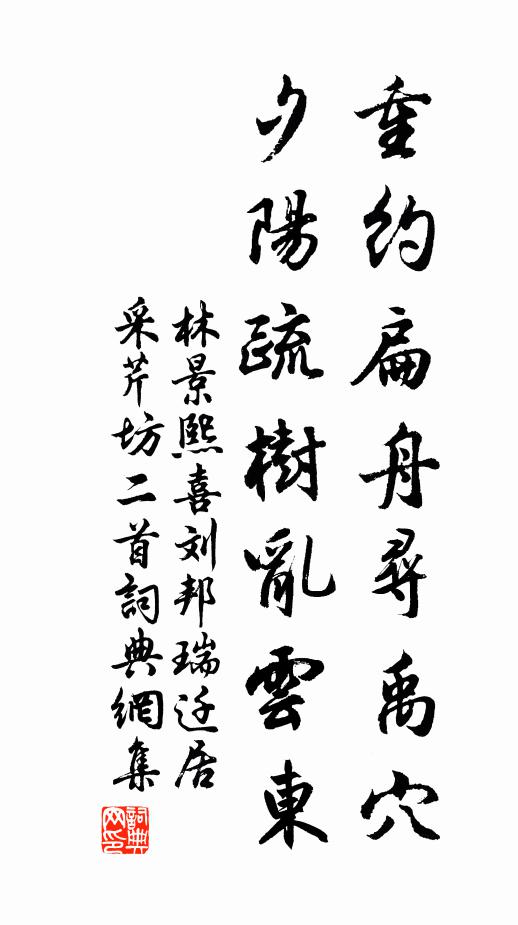 重约扁舟尋禹穴
夕陽疏樹亂雲東
林景熙喜刘邦瑞迁居
采芹坊二首詞典網集
詞典
网印